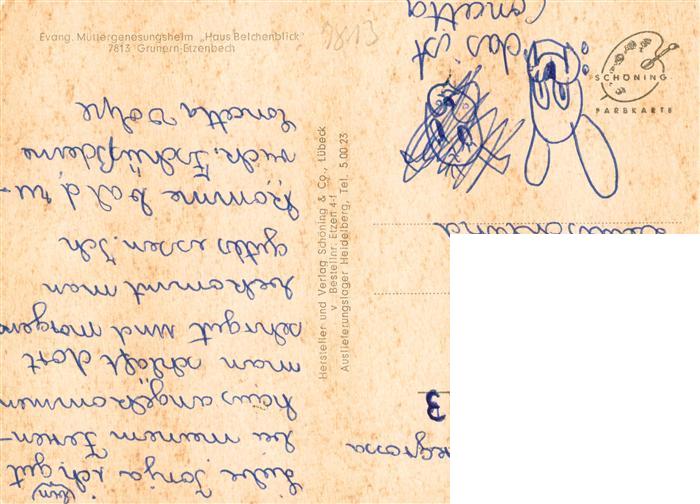 Evang. Müttergenesungsheim „Haus Belchenblick"
7813 Grunern-Etzenbach
7813
Liebe Tanja ich (bin) gut
bei meinem Ferien-
haus angekommen
man schläft dort
sehr gut und morgens
bekommt man
gutes essen. Ich
komme bald zu-
rück. Es grüßt deine
Concetta
Hersteller und Verlag Schöning & Co., Lübeck
v Bestellnr. Etzen 4-f
Auslieferungslager Heidelberg, Tel. 5 00 23
das ist
Concetta
SCHÖNING
FARBKARTE
3